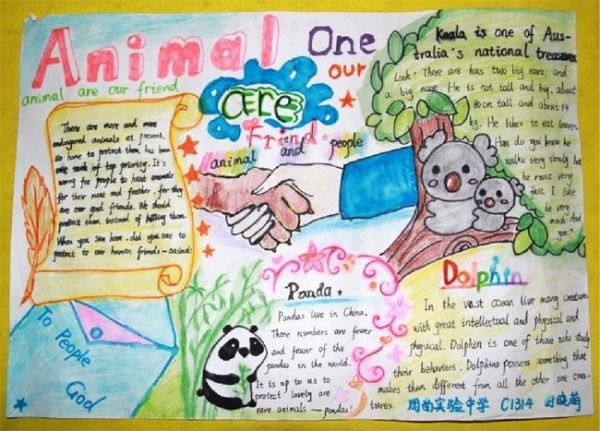 Animal
One
our
are
Friend
animal are our friend
animal and people
There are more and more
endangered animals at present,
so how to protect them has been
one task of top priority. It's
wrong for people to have animals
for their meat and feather, for they
are our good friends. We should
protect them instead of killing them.
When you see how did you see to
protect to our human friends — animal!
Koala is one of Aus-
tralia's national treasures
Look! There are has two big ears, and
a big nose. He is not tall and big, about
80 cm tall and about 14
kg. He likes to eat leaves.
How do you know he
walks very slowly but
he runs very
fast. I like
he very
much. And
you?
Panda.
Pandas live in China.
There numbers are fewer
and fewer of the
pandas in the world.
It is up to us to
protect lovely are
rare animals — pandas!
Dolphin
In the vast ocean live many creatures
with great intellectual and physical and
physical. Dolphin is one of those who study
their behaviors. Dolphins possess something that
makes them different from all the other sea crea-
tures.
To People
God
实验中学 C1314